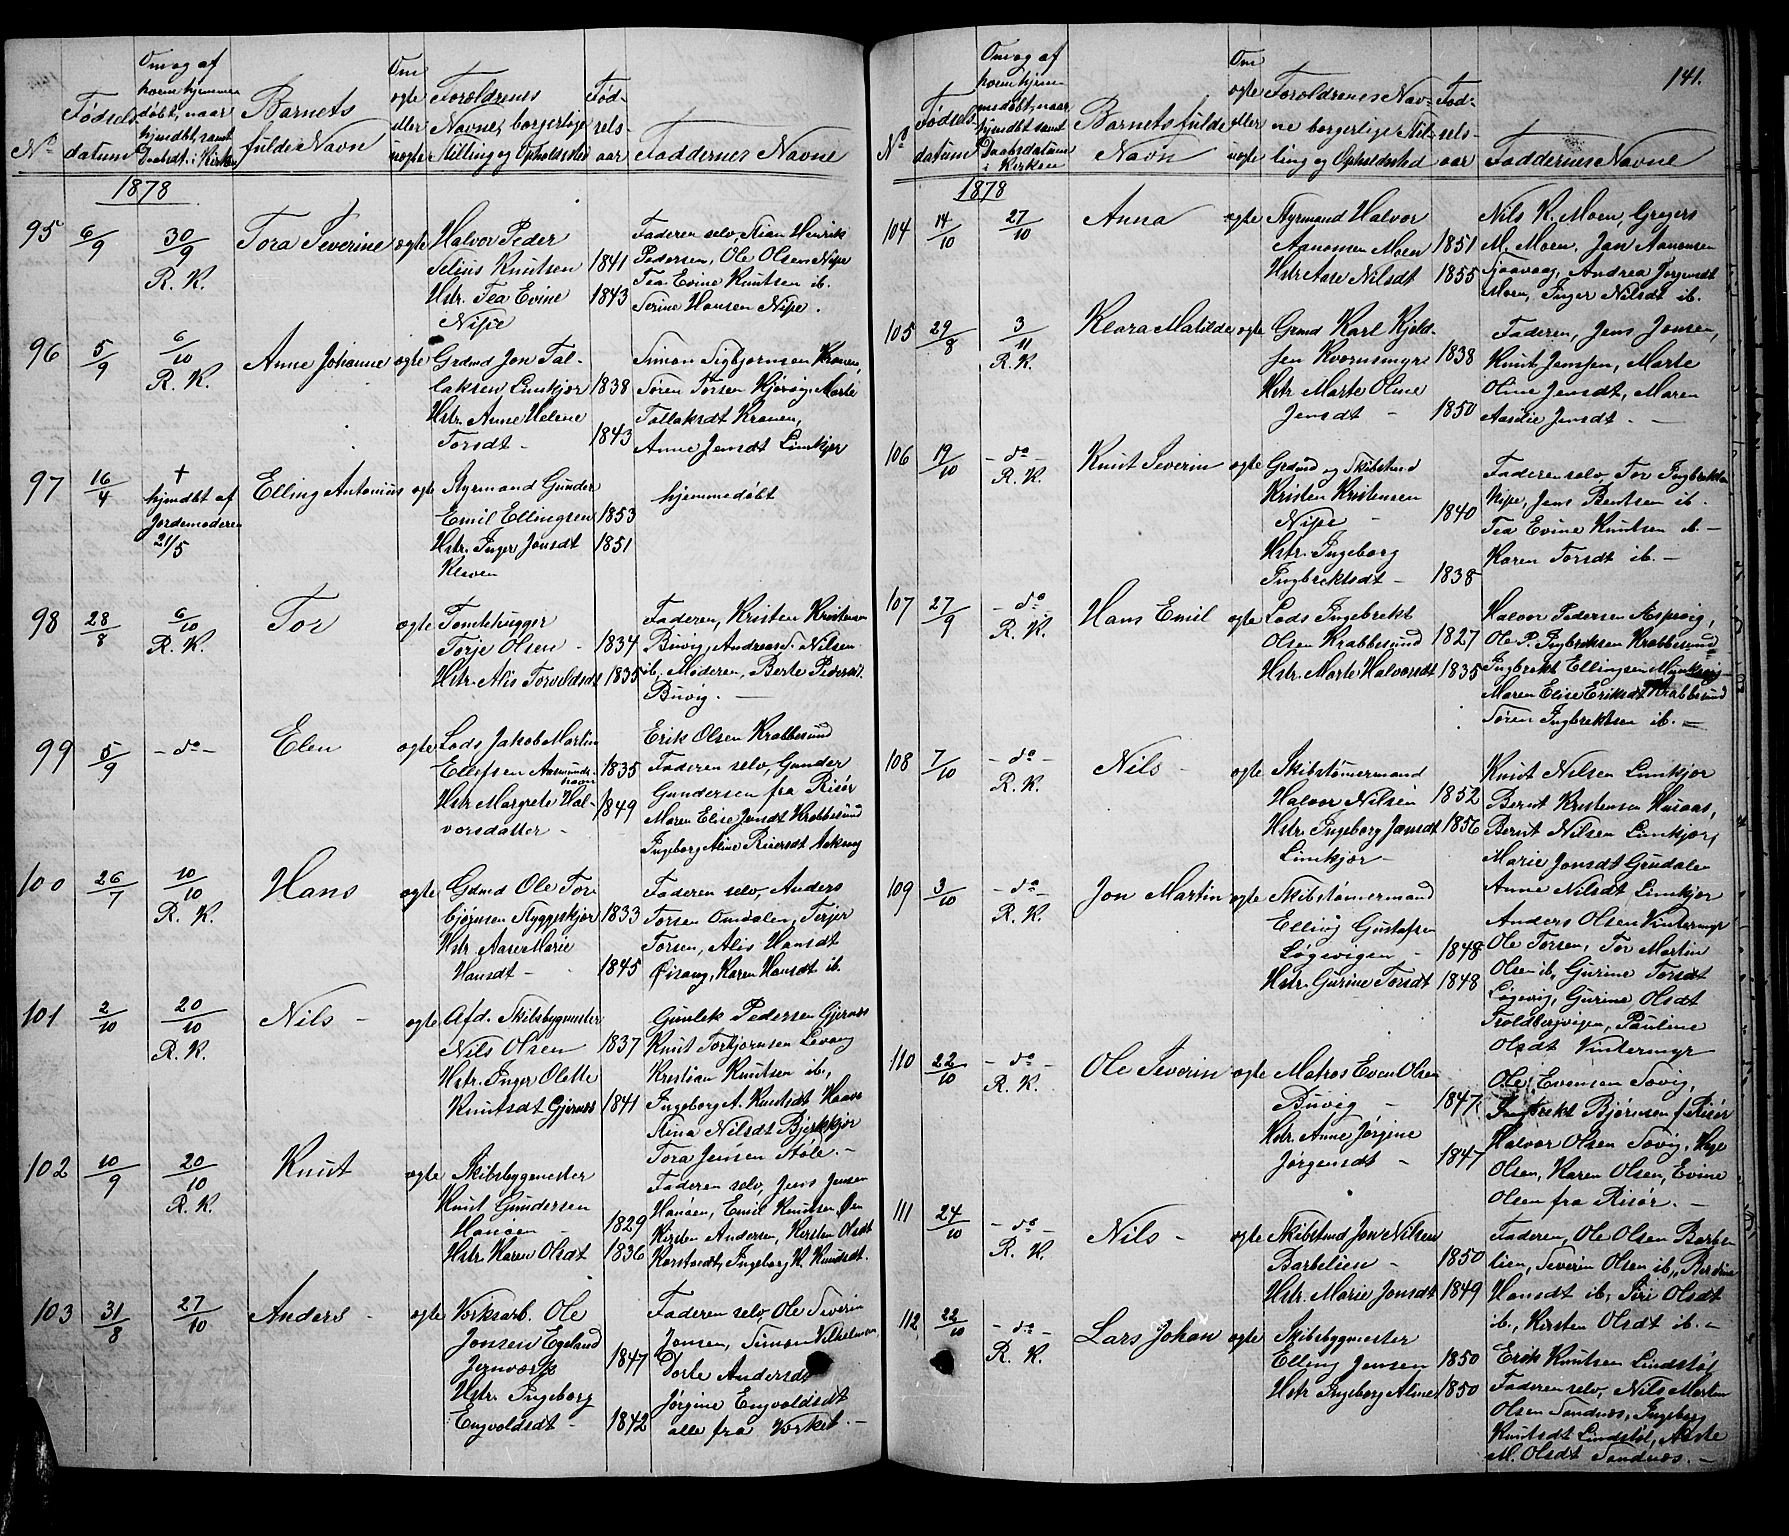 Nº
Fødsels
datum
Om og af
hvem hjemme
døbt, naar
hjemdbt samt
Daabsdt. i Kirken
Barnets
fulde Navn
Om
ægte
eller
uægte
Forældrenes
Navne, borgerlige
Stilling og Opholdssted
Fød-
sels-
aar
Faddernes Navne
1878
95
6/9
30/9
R. K.
Tora Severine
ægte
Halvor Peder
Selius Knutsen 1841
Hstr. Tea Evine 1843
Nipe
Faderen selv, Stian Henrik
Pedersen, Ole Olsen Nipe
Tea Evine Knutsen ib.
Serine Hansen Nipe.
96
5/9
6/10
R. K.
Anne Johanne
ægte
Grdmd Jon Tal-
laksen Limkjær 1838
Hstr. Anne Helene
Torsdt - 1843
Simon Sigbjørnsen Kranen,
Søren Torsen Kjørvig, Marte
Tallaksdt Kranen,
Anne Jensdt Limkjær
97
16/4
+
hjemdbt af
Jordemoderen
21/5
Elling Antonius
ægte
Styrmand Gunder
Emil Ellingsen 1853
Hstr. Inger Jonsdt 1851
Kleven
hjemmedøbt
98
28/8
6/10
R. K.
Tor
ægte
Tomtehugger
Torje Olsen - 1834
Hstr. Alis Torveldsdt 1835
Faderen, Kristen Kristensen
Buvig, Andreas S. Nilsen
ib, Moderen, Berte Pedersdt.
Buvig. -
99
5/9
- do -
Elen
ægte
Lods Jakob Martin
Ellefsen Aasmunds-
havn 1835
Hstr Margrete Hal- 1849
vorsdatter -
Erik Olsen Krabbesund
Faderen selv, Gunder
Gundersen fra Risør
Maren Elise Jensdt Krabbesund
Ingeborg Aline Reiersdt Askeøy
100
26/7
10/10
R. K.
Hans
ægte
Grdmd Ole Tor-
bjørnsen Styggskjær 1833
Hstr. Aase Marie
Hansdt - 1845
Faderen selv, Anders
Torsen Omdalen, Terjer
Torsen, Alis Hansdt
Øisang, Karen Hansdt ib.
101
2/10
20/10
R. K.
Nils -
ægte
Afd. Skibsbygmester
Nils Olsen 1837
Hstr. Inger Olette
Knutsdt Gjernæs 1841
Gunlek Pedersen Gjernæs
Knut Torbjørnsen Levang
Kristian Knutsen ib,
Ingeborg A. Knutsdt Haave
Stina Nilsdt Bjerkkjær
Tora Jensen Støle. -
102
10/9
20/10
R. K.
Knut
ægte
Skibsbyggmester
Knut Gundersen
Hansen 1829
Hstr Karen Olsdt 1836
Faderen selv, Jens Jensen
Hansen, Emil Knutsen Øen
Kirsten Andersen, Kirsten Olsdt
Korstvedt, Ingeborg K. Knudsdt.
103
31/8
27/10
Anders -
ægte
Verksarb. Ole
Jensen Egeland
Jernværk 1847
Hstr. Ingeborg
Engvoldsdt - 1842
Faderen selv, Ole Severin
Jonsen, Simon Vilhelmsen
Dorte Andersdt
Jørgine Engvoldsdt
alle fra Verket. -
141.
Nº
Fødsels
datum
Om og af
hvem hjem-
medøbt, naar
hjemdbt samt
Daabsdatum
i Kirken
Barnets fulde
Navn
Om
ægte
eller
uægte
Forældrenes Nav-
ne borgerlige Stil-
ling og Opholdssted
Fød-
sels-
aar
Faddernes Navne
1878
104
14/10
27/10
Anna
ægte
Styrmand Halvor
Aanonsen Moen 1851
Hstr Aase Nilsdt 1855
Nils K. Moen, Gregers
M. Moen, Jan Aanonsen
Sjaavaag, Andrea Jørgensdt
Moen, Inger Nilsdt ib.
105
29/8
3/11
R. K.
Klara Matilde
ægte
Grmd Karl Kjeld-
sen Kvernsmyr 1838
Hstr Marte Oline
Jensdt - 1850
Faderen, Jens Jonsen,
Knut Jenssen, Marte
Oline Jensdt, Maren
Aasilie Jensdt -
106
19/10
- do -
R. K.
Knut Severin
ægte
Grdmd og Skibstmd
Kristen Kristensen
Nipe - 1840
Hstr. Ingeborg
Ingbrektsdt - 1838
Faderen selv, Tor Ingbrektsen
Nipe, Jens Bentsen ib.
Tea Evine Knutsen ib. -
Karen Torsdt ib. -
107
27/9
- do -
R. K.
Hans Emil
ægte
Lods Ingebrekt
Olsen Krabbesund 1827
Hstr. Marte Halvorsdt 1835
Halvor Pedersen Aspevig,
Ole P. Ingbriktsen Krabbesund
Ingbrekt Ellingsen
Maren Elise Eriksdt Krabbesund
Søren Ingbrektsen ib. -
108
7/10
- do -
R. K.
Nils -
ægte
Skibstømermand
Halvor Nilsen 1852
Hstr. Ingeborg Jansdt 1856
Limkjær -
Knut Nilsen Limkjær
Bernt Kristensen Husaas,
Bernt Nilsen Limkjær,
Marie Jonsdt Grudalen
Anne Nilsdt Limkjær
109
3/10
- do -
R. K.
Jon Martin
ægte
Skibstømermand
Elling Gustafsen
Løgevigen - 1848
Hstr. Gurine Torsdt 1848
Anders Olsen Vintermyr
Ole Torsen, Tor Martin
Olsen ib, Gurine Torsdt
Løgevig, Gurine Olsdt
Troldbergvigen, Pauline
Olsdt Vintermyr
110
22/10
- do -
R. K.
Ole Severin
ægte
Matros Even Olsen
Buvig - 1847
Hstr. Anne Jørgine
Jørgensdt - 1847
Ole Evensen Søvig,
Ingbrekt Bjørnsen f. Risør
Halvor Olsen Søvig,
Olsen, Karen Olsen, Evine
Olsen fra Risør. -
111
24/10
- do -
R. K.
Nils -
ægte
Skibstmd Jon Nilsen
Barbelien - 1850
Hstr. Marie Jonsdt 1849
Faderen, Ole Olsen Barbe-
lien, Severin Olsen ib, Berdine
Hansdt ib, Siri Olsdt
ib., Kirsten Olsdt ib. -
112
22/10
- do -
R. K.
Lars Johan
ægte
Skibsbygmester
Elling Jensen 1850
Hstr Ingeborg Aline 1850
Erik Knutsen Lindstøl
Faderen selv, Nils Martin
Olsen Sandnæs, Ingeborg
Knutsdt Lindstøl, Aaste
M. Olsdt Sandnæs. -